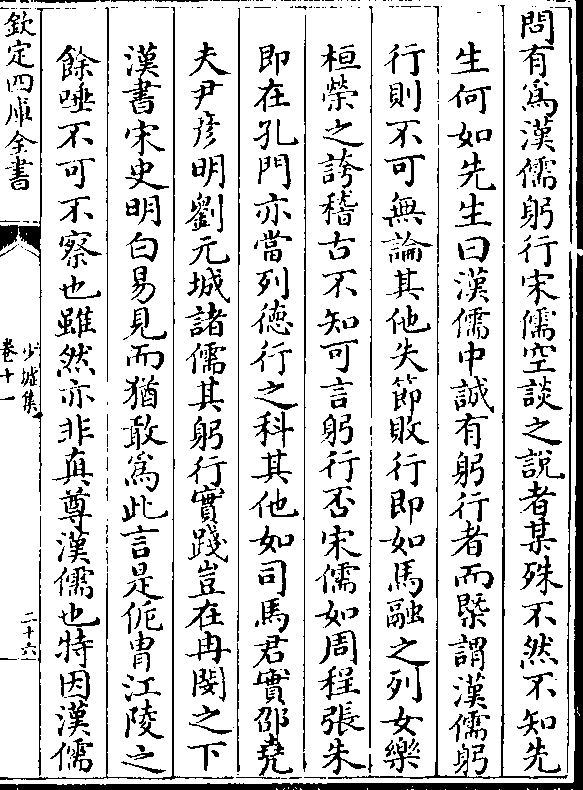 問有爲漢儒躬行宋儒空談之說者某殊不然不知先
生何如先生曰漢儒中誠有躬行者而槩謂漢儒躬
行則不可無論其他失節敗行即如馬融之列女樂
桓榮之誇稽古不知可言躬行否宋儒如周程張朱
即在孔門亦當列德行之科其他如司馬君實邵堯
夫尹彦明劉元城諸儒其躬行實踐豈在冉閔之下
漢書宋史明白易見而猶敢爲此言是侂胄江陵之
餘唾不可不察也雖然亦非真尊漢儒也特因漢儒
欽定四庫全書
少墟集
卷十一
二十六